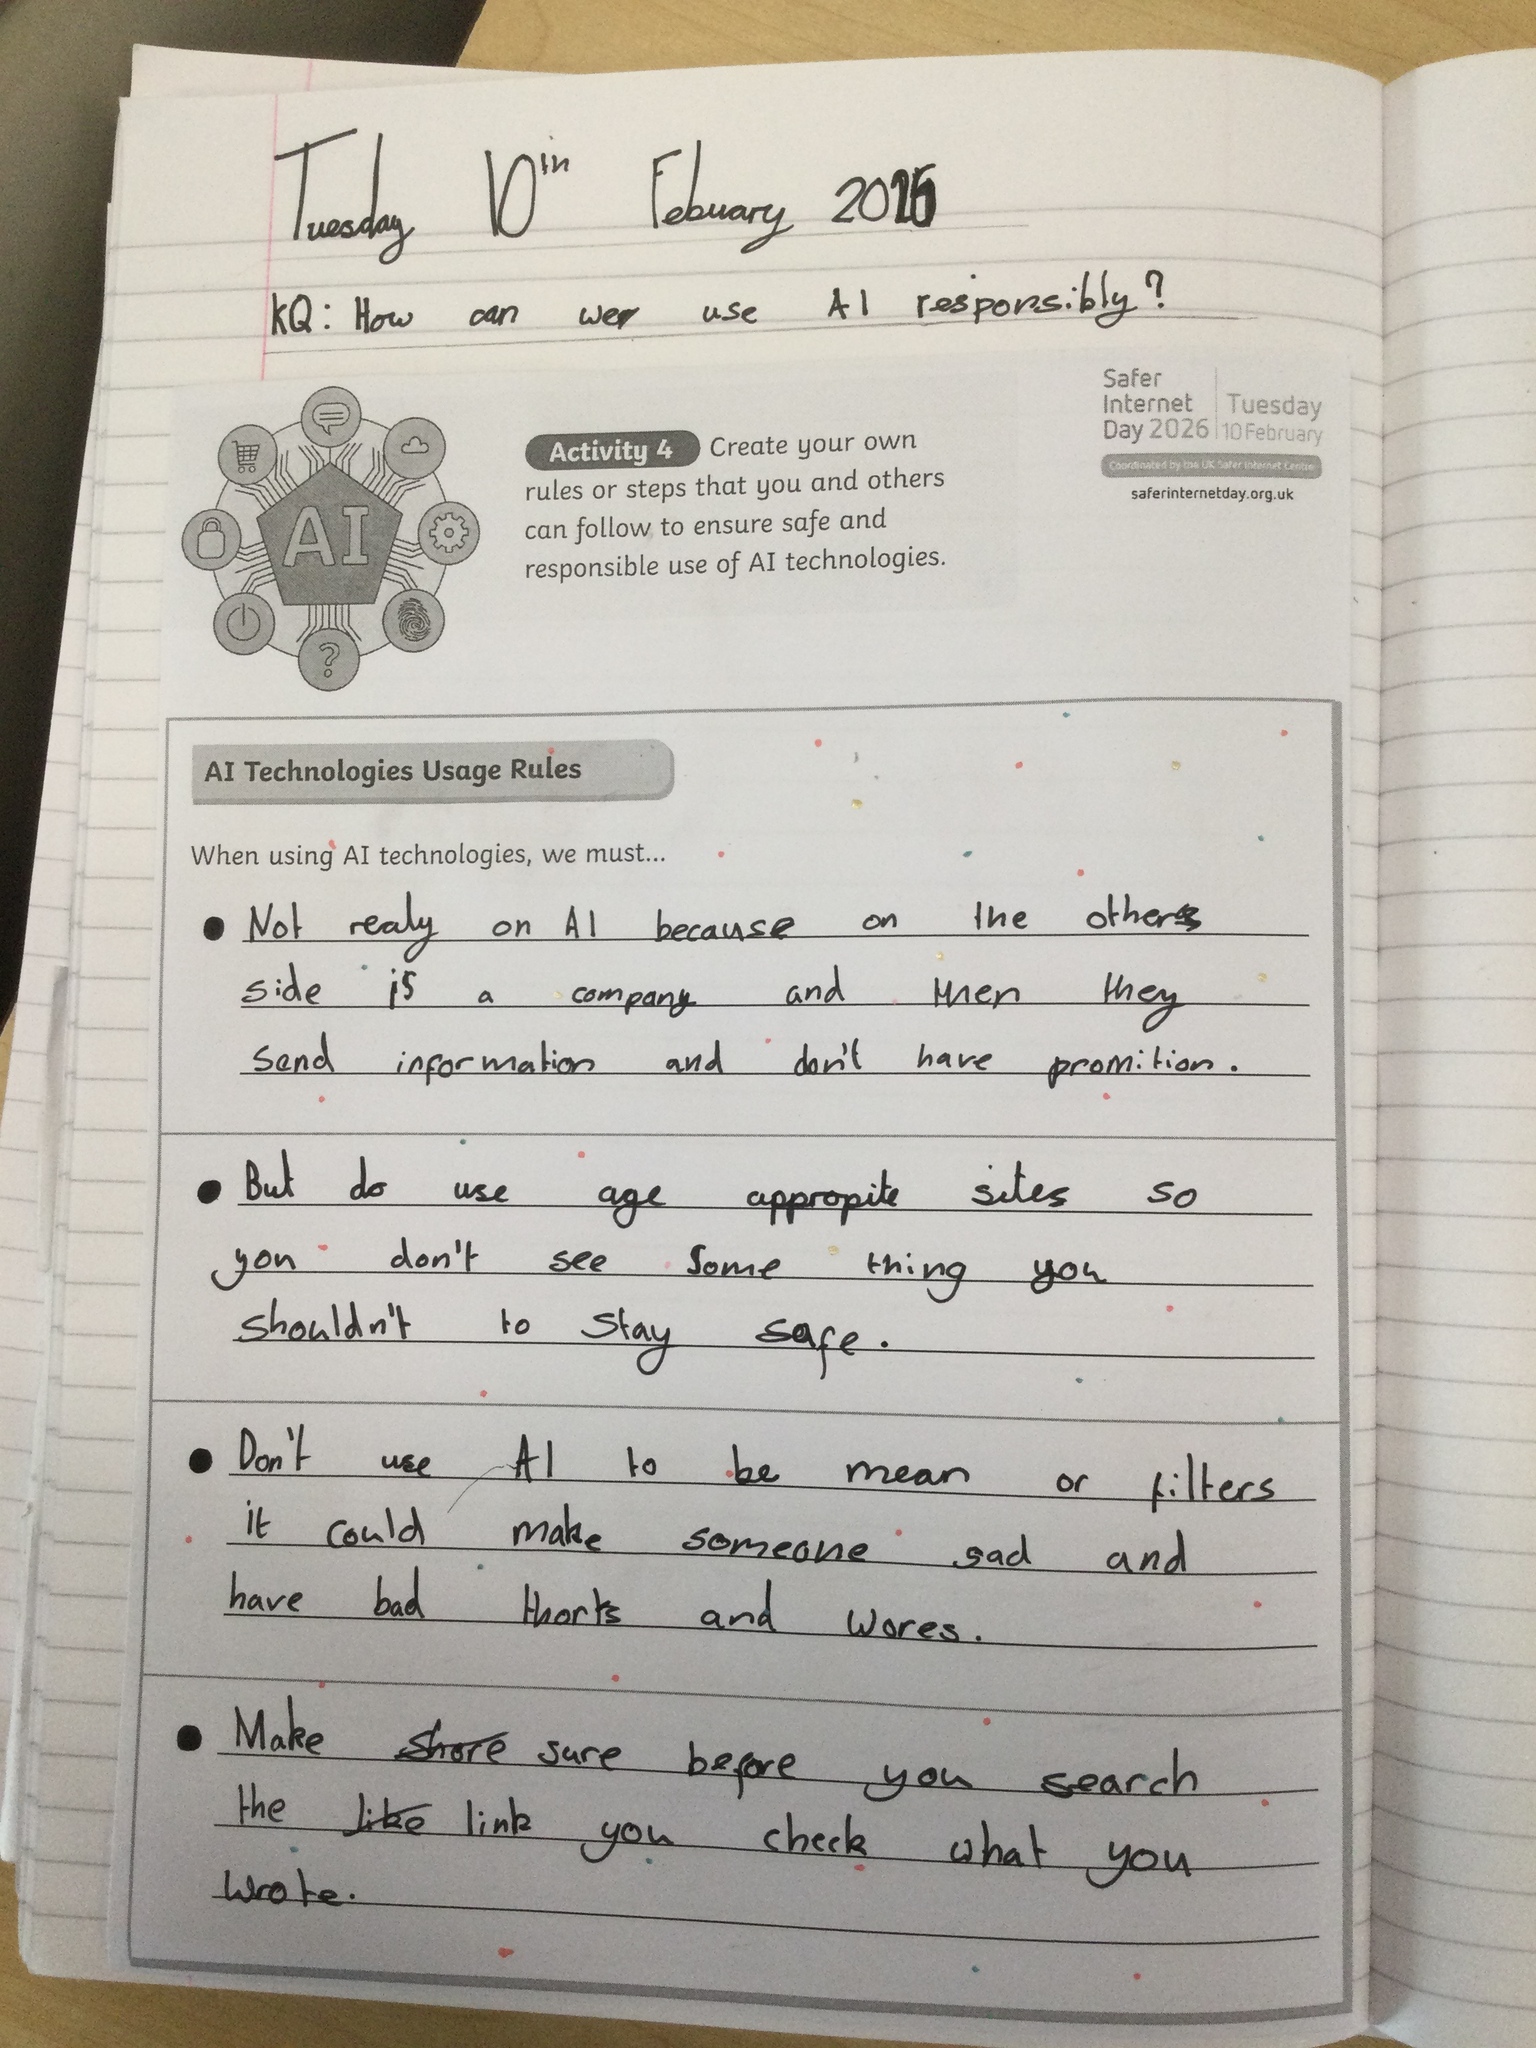 Tuesday 10th Febuary 2026
KQ: How can we use AI responsibly?
Safer
Internet
Day 2026
Tuesday
10 February
Coordinated by the UK Safer Internet Centre
saferinternetday.org.uk
AI
Activity 4 Create your own
rules or steps that you and others
can follow to ensure safe and
responsible use of AI technologies.
AI Technologies Usage Rules
When using AI technologies, we must...
Not realy on AI because on the other
side is a company and then they
send information and don't have promition.
But do use age appropite sites so
you don't see some thing you
shouldn't to stay safe.
Don't use AI to be mean or filters
it could make someone sad and
have bad thorts and wores.
Make shore sure before you search
the like link you check what you
wrote.